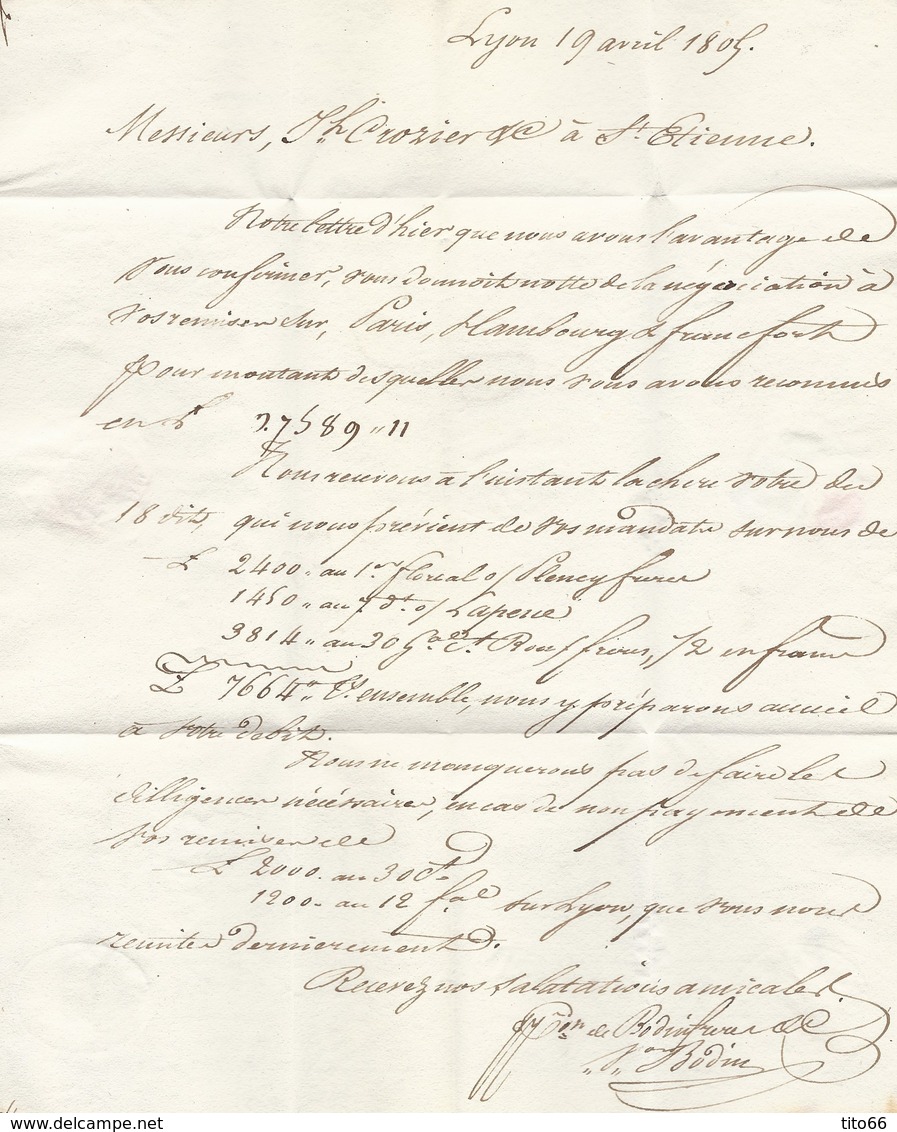 Lyon 19 avril 1805.
Messieurs, Jh Crozier & C à St. Etienne.
Notre lettre d'hier, que nous avons l'avantage de
vous confirmer, vous donnoit notte de la négociation à
vos remises sur, Paris, Hambourg & francfort
pour montant desquelles nous vous avons reconnus
en 7589 " 11
Nous recevons à l'instant la chere votre du
18 dit, qui nous prévient de vos mandats sur nous de
£ 2400 " au 1er floreal o/ Pleney freres
1450 " au 7 dt o/ Laperie
3814 " au 30 freres, 1/2 en francs
£ 7664 " Ls ensemble, nous y préparons accueil
à votre debit.
Nous ne manquerons pas de faire les
dilligences nécéssaires, en cas de non payement de
vos remises de
£ 2000. au 30 Ct
1200 " au 12 fal sur Lyon, que vous nous
remites dernierement.
Recevez nos salutations amicales.
de Bodin freres & C
Bodin
tito66